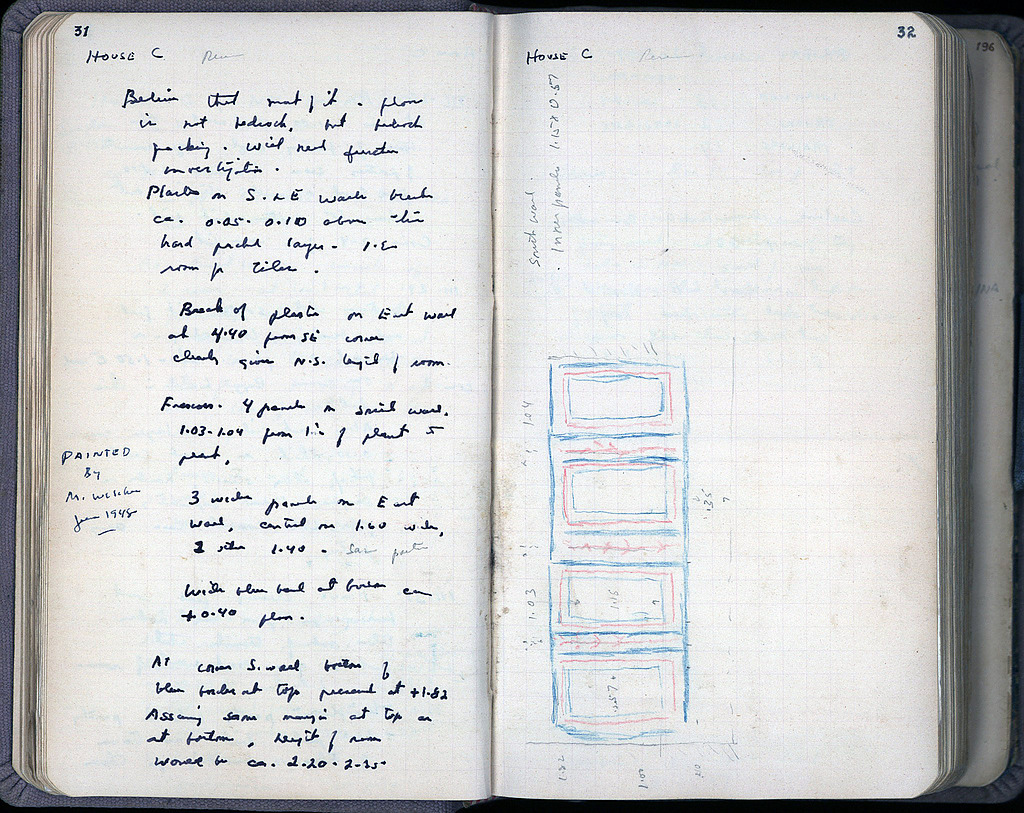 31
HOUSE C
Believe that most of it. floor
is not bedrock, but bedrock
packing. Will need further
investigation.
Plaster on S. & E walls breaks
ca. 0.05-0.10 above the
hard packed layer -
room for tiles.
Break of plaster on East wall
at 4.40 from SE corner
clearly gives N.S. length of room.
Frescoes. 4 panels on South wall.
1.03-1.04 from of plant to
plant.
PAINTED
By
M. Welker
June 1948
3 wider panels on East
wall, central on 1.60 wide,
2 sides 1.40.
Wide blue band at bottom ca
+0.40 floor.
At corner S. wall bottom of
blue border at top present at +1.82
Assuming same margin at top as
at bottom, height of room
would be ca. 2.20-2.25.
32
HOUSE C
South wall.
Inner panels 1.15 x 0.57
1.04
1.03
1.35
?
1.15
0.57
1.82